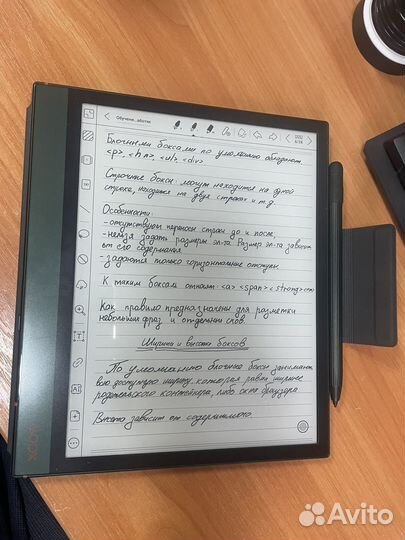 Обучени...аботик
Блочными боксами по умолчанию обладают
<p>, <hn>, <ul>, <div>
Строчные боксы: могут находится на одной
строке, находится на двух строках и т.д.
Особенности:
- отсутствуют переносы строк до и после,
- нельзя задать размеры эл-та. Размер эл-та зависит
от его содержания
- задаются только горизонтальные отступы.
К таким боксам относят: <a> <span> <strong>
Как правило предназначены для разметки
небольших фраз и отдельных слов.
Ширина и высота боксов
По умолчанию блочные боксы занимают
всю доступную ширину, которая равна ширине
родительского контейнера, либо окна браузера
Высота зависит от содержимого.
BOOX
Avito